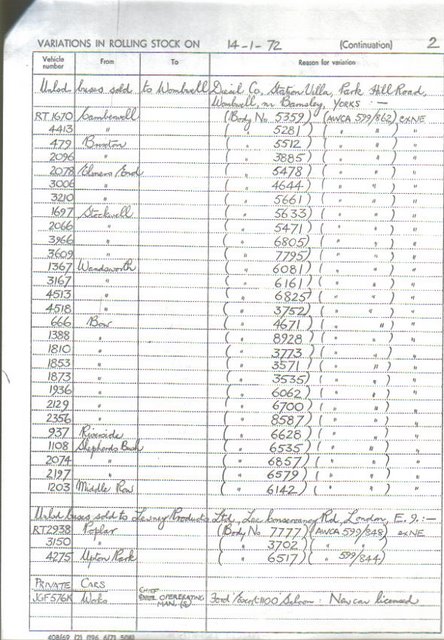 VARIATIONS IN ROLLING STOCK ON 14-1-72 (Continuation) 2
Vehicle number From To Reason for variation
Unlsd buses sold to Wombwell Diesel Co, Station Villa, Park Hill Road,
Wombwell, nr Barnsley, YORKS :—
RT 1670 Camberwell (Body No 5359) (AWCA 599/862) exNE
4413 " ( " 5281 ) ( " " ) "
479 Brixton ( " 5512 ) ( " " ) "
2096 " ( " 3885 ) ( " " ) "
2078 Elmers End ( " 5478 ) ( " " ) "
3006 " ( " 4644 ) ( " " ) "
3210 " ( " 5661 ) ( " " ) "
1697 Stockwell ( " 5633 ) ( " " ) "
2066 " ( " 5471 ) ( " " ) "
3966 " ( " 6805 ) ( " " ) "
3609 " ( " 7795 ) ( " " ) "
1367 Wandsworth ( " 6081 ) ( " " ) "
3167 " ( " 6161 ) ( " " ) "
4513 " ( " 6825 ) ( " " ) "
4518 " ( " 3752 ) ( " " ) "
666 Bow ( " 4671 ) ( " " ) "
1388 " ( " 8928 ) ( " " ) "
1810 " ( " 3773 ) ( " " ) "
1853 " ( " 3571 ) ( " " ) "
1873 " ( " 3535 ) ( " " ) "
1936 " ( " 6062 ) ( " " ) "
2129 " ( " 6700 ) ( " " ) "
2356 " ( " 8587 ) ( " " ) "
937 Riverside ( " 6628 ) ( " " ) "
1108 Shepherds Bush ( " 6535 ) ( " " ) "
2074 " ( " 6857 ) ( " " ) "
2197 " ( " 6579 ) ( " " ) "
1203 Middle Row ( " 6142 ) ( " " ) "
Unlsd buses sold to Products Ltd, Lee Conservancy Rd, London, E.9. :—
RT2938 Poplar (Body No 7777) (AWCA 599/848) exNE
3150 " ( " 3702 ) ( " " ) "
4275 Upton Park ( " 6517 ) ( " 599/844) "
PRIVATE CARS
JGF576K Works CHIEF OPERATING MAN. (S) Ford Escort 1100 Saloon : New car licensed